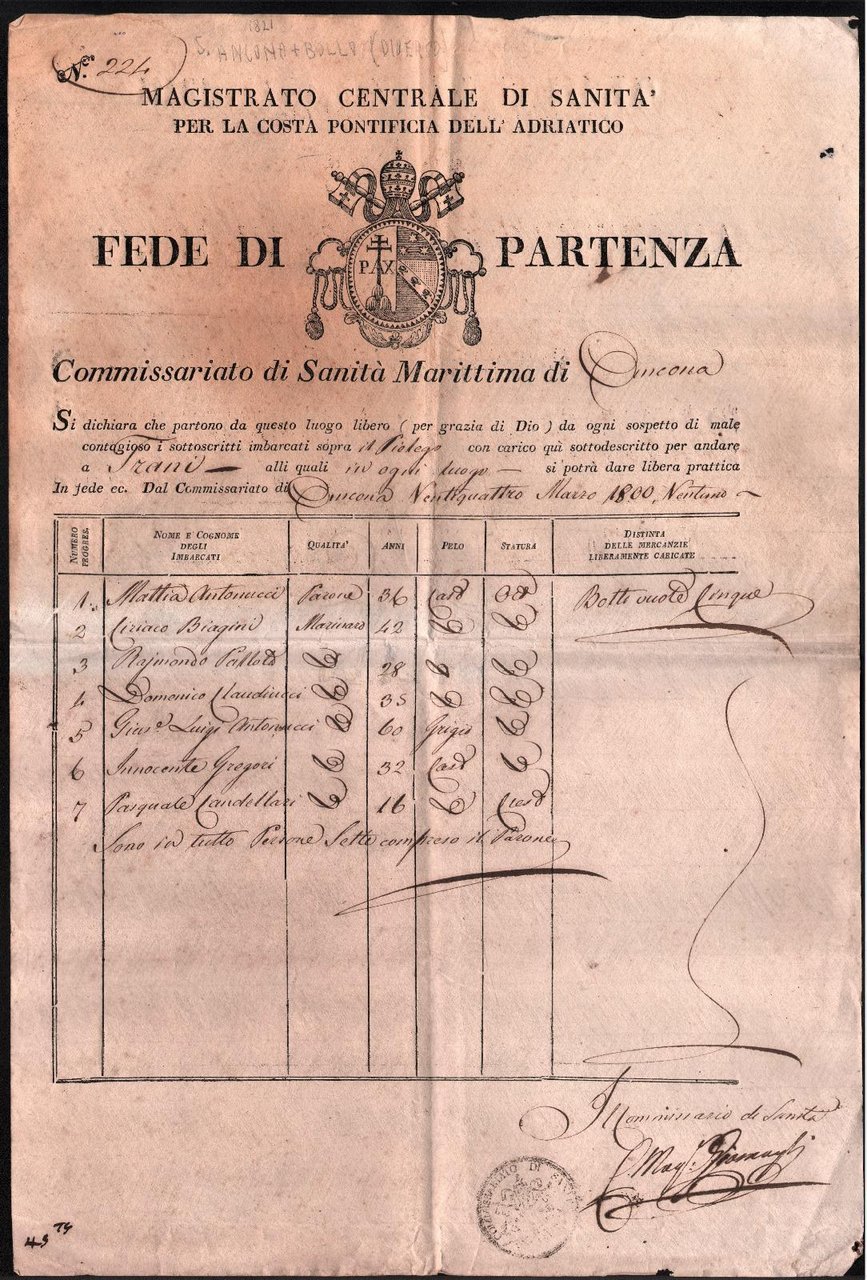 1821
S. ANCONA + BOLLO
N.º 224
MAGISTRATO CENTRALE DI SANITA'
PER LA COSTA PONTIFICIA DELL' ADRIATICO
PAX
FEDE DI PARTENZA
Commissariato di Sanità Marittima di Ancona
Si dichiara che partono da questo luogo libero ( per grazia di Dio ) da ogni sospetto di male
contagioso i sottoscritti imbarcati sopra il Pielego con carico quì sottodescritto per andare
a Trani — alli quali in ogni luogo — si potrà dare libera prattica
In fede ec. Dal Commissariato di Ancona Ventiquattro Marzo 1800 Ventuno —
NUMERO PROGRES. NOME E COGNOME DEGLI IMBARCATI QUALITA' ANNI PELO STATURA DISTINTA DELLE MERCANZIE LIBERAMENTE CARICATE
1. Mattia Antonucci Parone 36 Cast Ord Botti vuote Cinque
2 Ciriaco Biagini Marinaro 42
3 Rajmondo Pallota 28
4 Domenico Claudiucci 35
5 Gius.e Luigi Antonucci 60 Grigio
6 Innocente Gregori 32 Cast
7 Pasquale Candellari 16 Cresc
Sono in tutto Persone Sette compreso il Parone
Il Commissario di Sanità
COMMISSARIATO DI SANITA